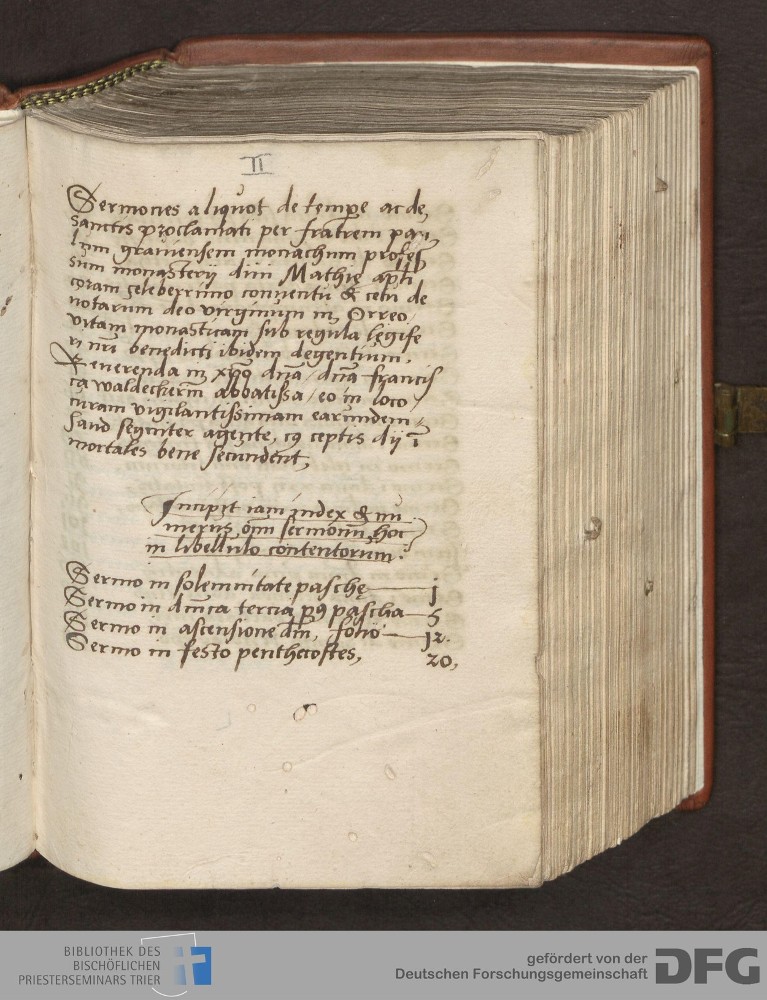 II
Sermones aliquot de tempe ac de
sanctis proclamati per fratrem pau
lum graviensem monachum profes
sum monasterij divi Mathię apli
coram celeberrimo conventu & cetu de
notarum deo virginum in Orreo
vitam monasticam sub regula legife
ri nri benedicti ibidem degentium.
Reverenda in xpo dna / dna francis
ca abbatissa / eo in loco /
curam vigilantissimam earundem
haud segniter agente, cq ceptis dij i
mortales bene secundent,
Incipit iam index & nu
merus oim sermonum hoc
in libellulo contentorum.
Sermo in solemnitate paschę — j
Sermo in dnica tercia p9 pascha — 5
Sermo in ascensione dni, folio — 12.
Sermo in festo penthecostes, 20,
BIBLIOTHEK DES
BISCHÖFLICHEN
PRIESTERSEMINARS TRIER
gefördert von der
Deutschen Forschungsgemeinschaft
DFG